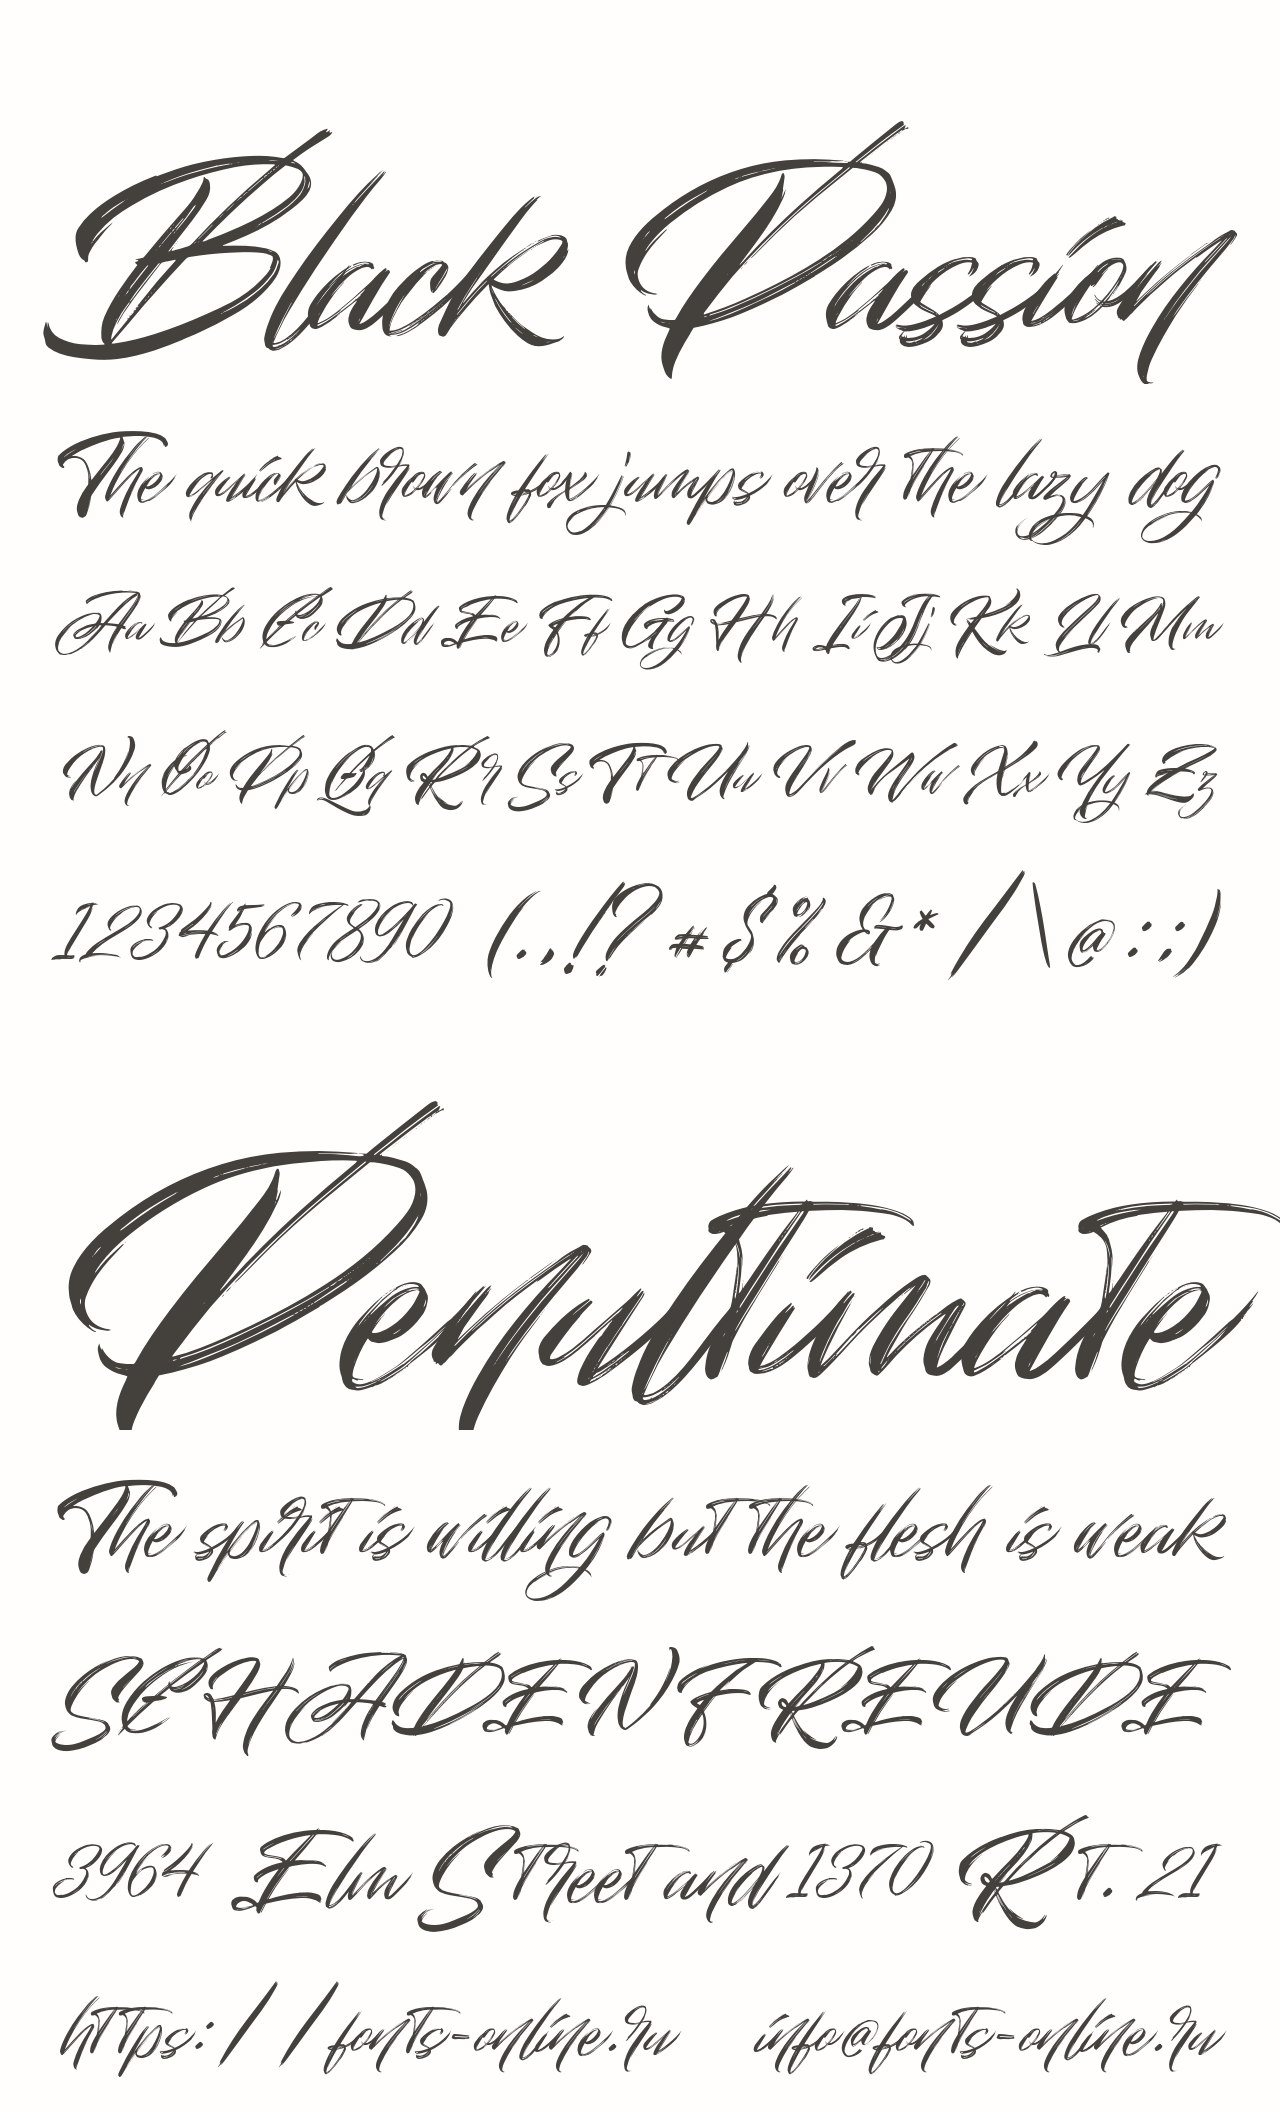 Black Passion
The quick brown fox jumps over the lazy dog
Aa Bb Cc Dd Ee Ff Gg Hh Ii Jj Kk Ll Mm
Nn Oo Pp Qq Rr Ss Tt Uu Vv Ww Xx Yy Zz
1234567890 (.,!? # $ % & * / \ @ : ;)
Penultimate
The spirit is willing but the flesh is weak
SCHADENFREUDE
3964 Elm Street and 1370 Rt. 21
https://fonts-online.ru info@fonts-online.ru